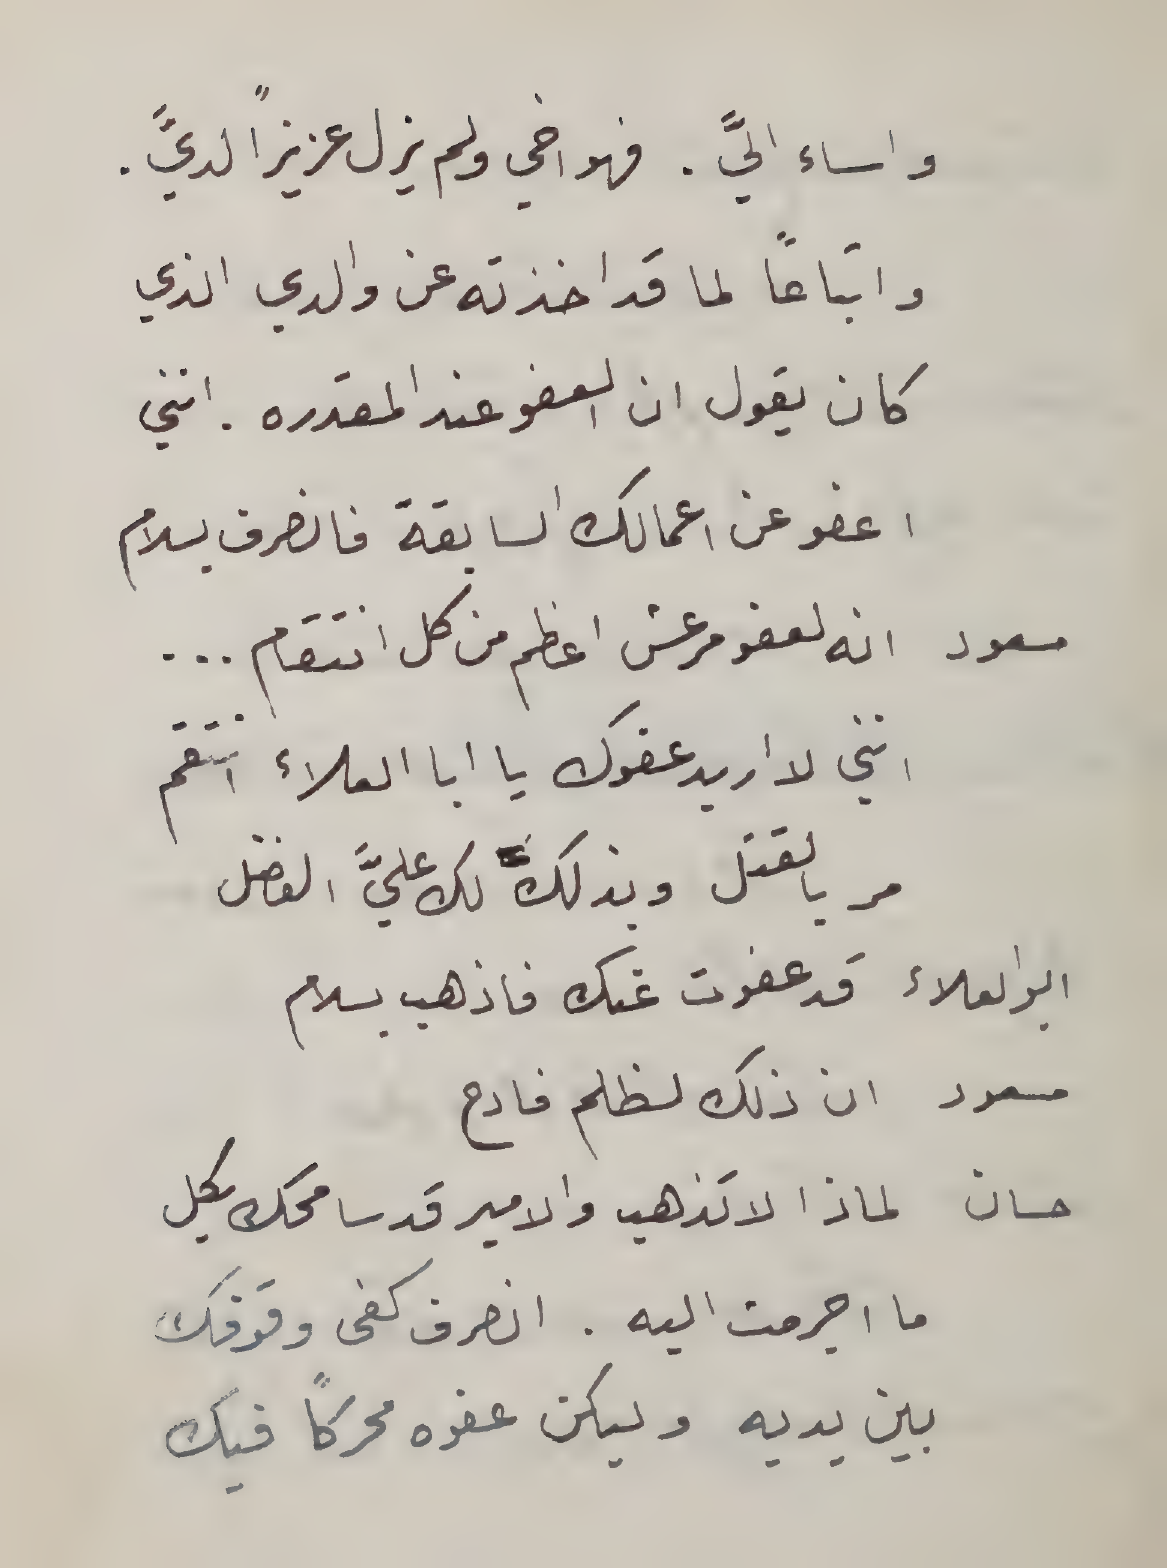 واساء اليَّ . فهو اخي ولم يزل عزيزاً لديَّ .
واتباعًا لما قد اخذته عن والدي الذي
كان يقول ان العفو عند المقدره . انني
اعفو عن اعمالك السابقة فانصرف بسلام
مسعود انه لعفو مرعش اعظم من كل انتقام ...
انني لا اريد عفوك يا ابا العلاء انتقم
مر بالقتل وبذلك لك عليَّ الفضل
ابو العلاء قد عفوت عنك فاذهب بسلام
مسعود ان ذلك لظلم فادح
حسان لماذا لا تذهب والامير قد سامحك بكل
ما اجرمت اليه . انصرف كفى وقوفك
بين يديه وليكن عفوه محركًا فيك